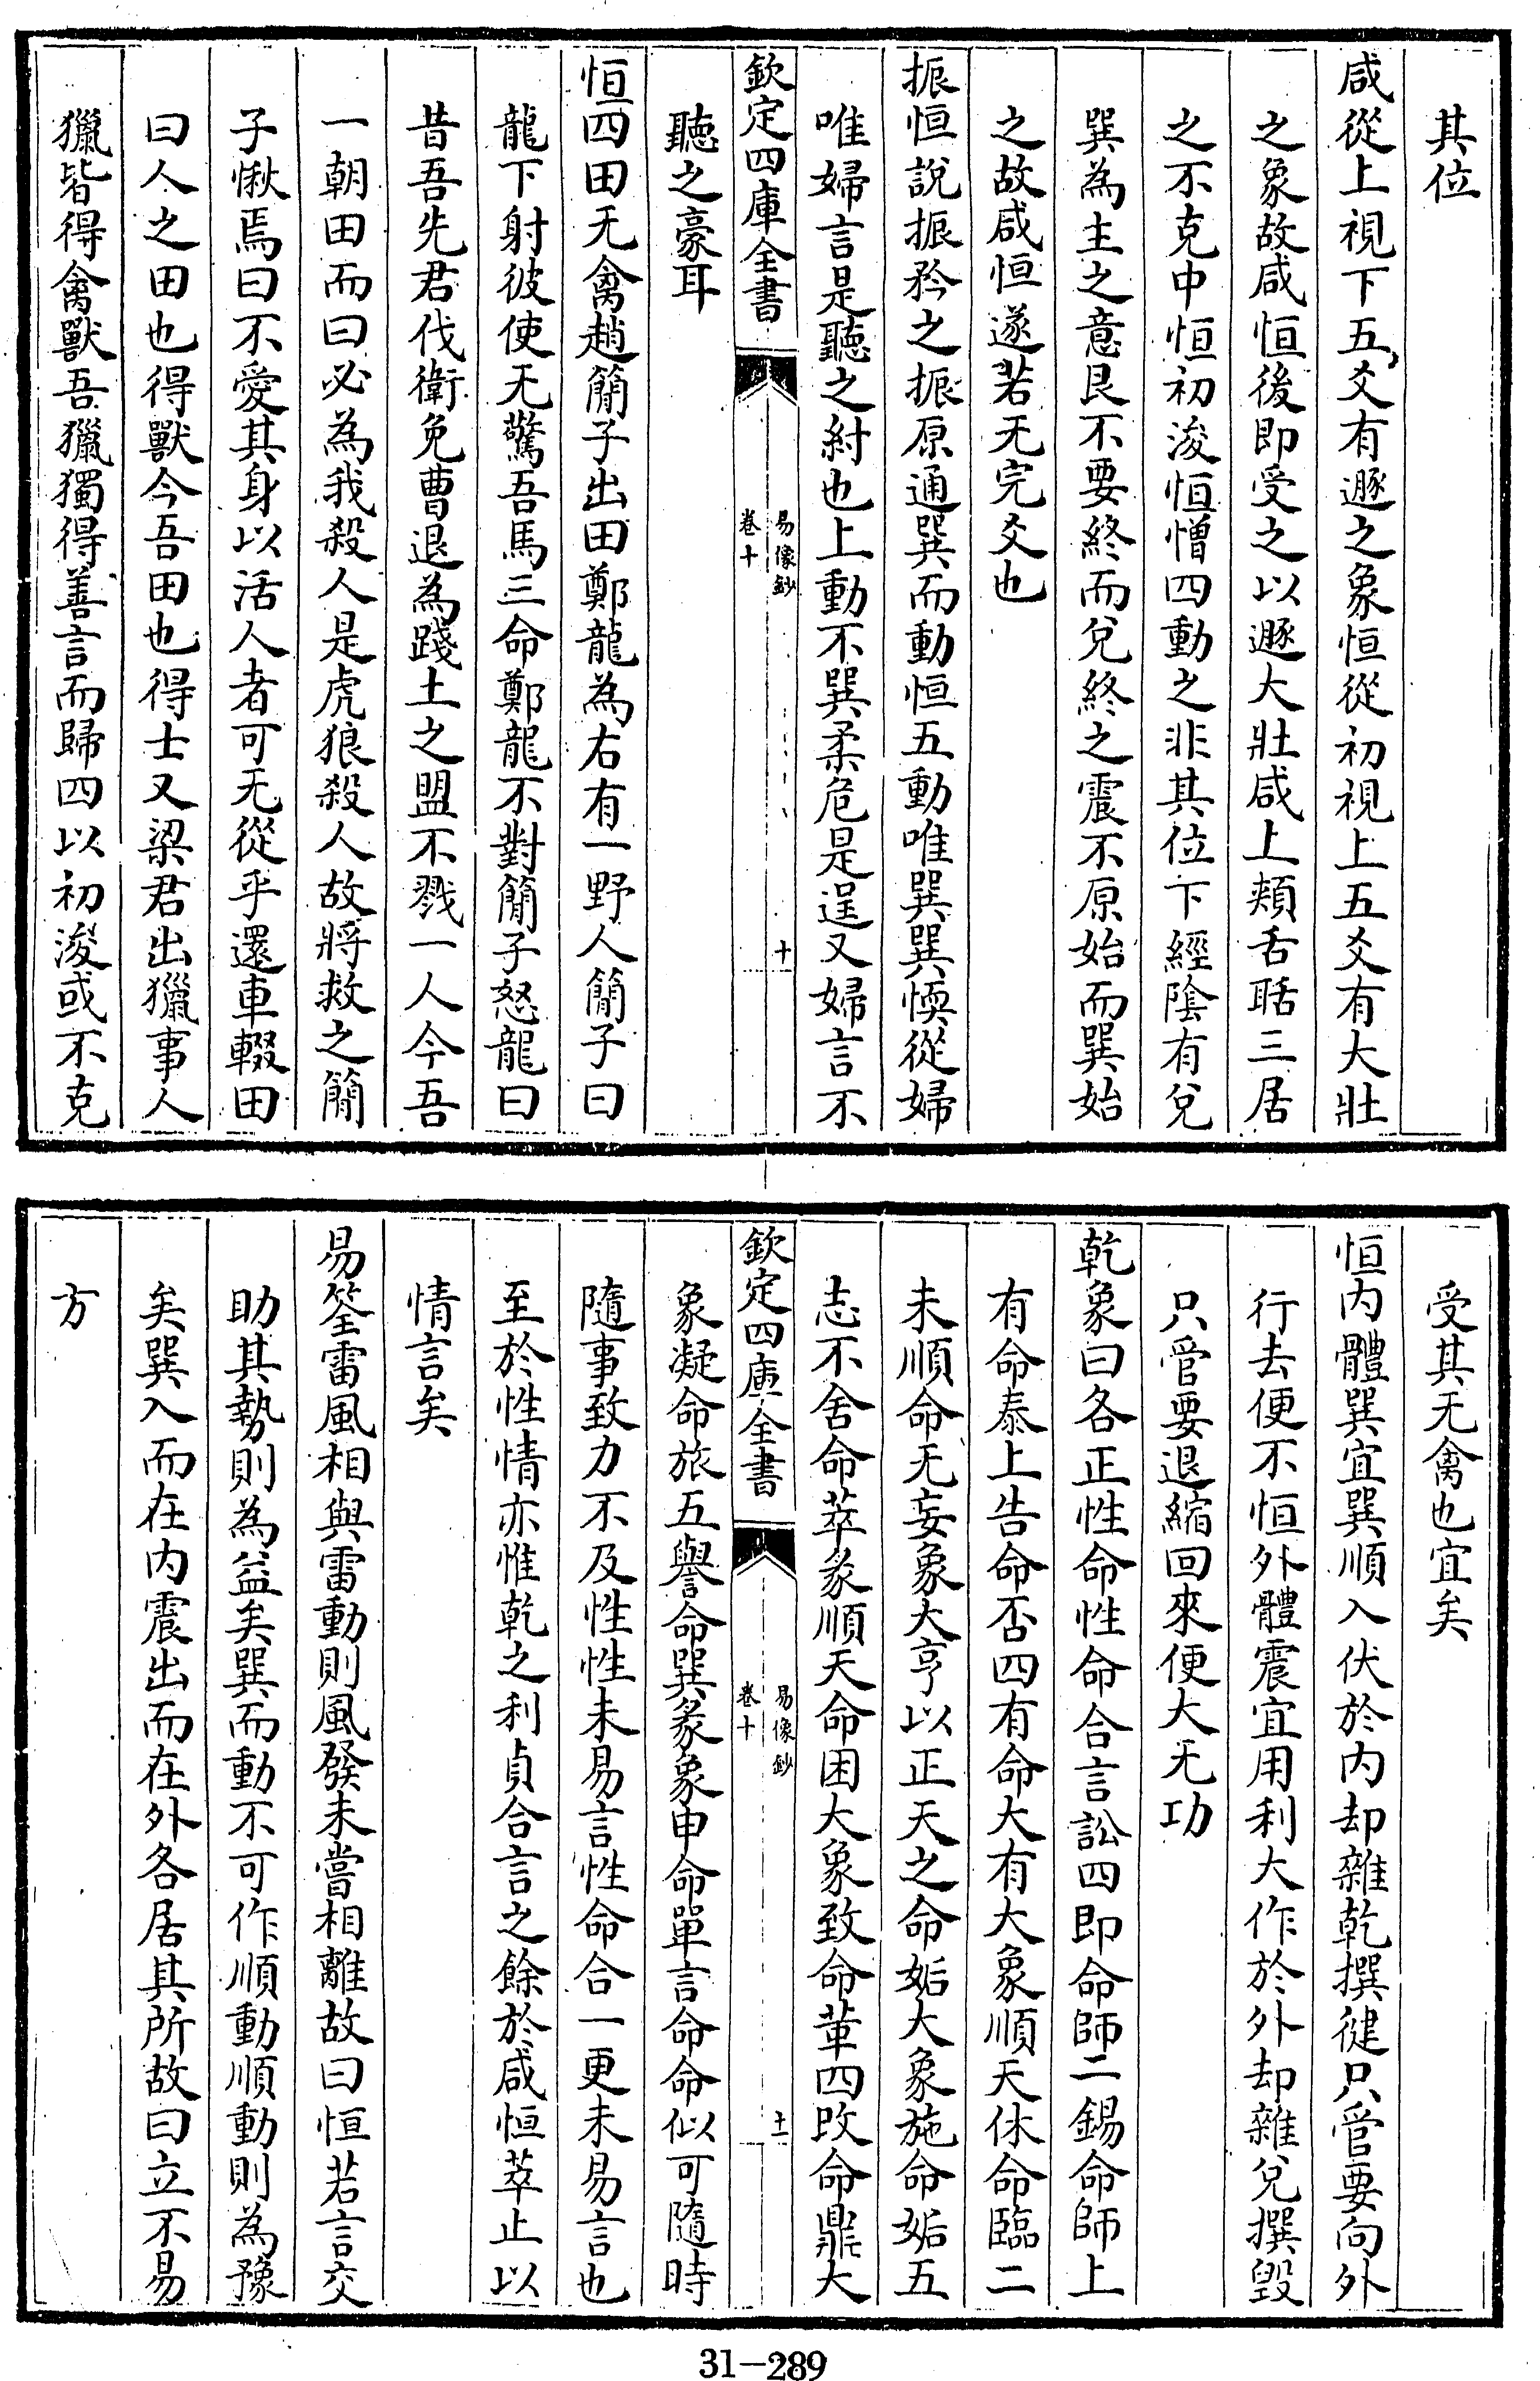 其位
咸從上視下五爻有遯之象恒從初視上五爻有大壯
之象故咸恒後即受之以遯大壯咸上頰舌聒三居
之不克中恒初浚恒憎四動之非其位下經陰有兌
巽為主之意艮不要終而兌終之震不原始而巽始
之故咸恒遂若无完爻也
振恒說振矜之振原通巽而動恒五動唯巽巽愞從婦
唯婦言是聽之紂也上動不巽柔危是逞又婦言不
欽定四庫全書
易像鈔
卷十
十
聽之豪耳
恒四田无禽趙簡子出田鄭龍為右有一野人簡子曰
龍下射彼使无驚吾馬三命鄭龍不對簡子怒龍曰
昔吾先君伐衛免曹退為踐土之盟不戮一人今吾
一朝田而曰必為我殺人是虎狼殺人故將救之簡
子愀焉曰不愛其身以活人者可无從乎還車輟田
曰人之田也得獸今吾田也得士又梁君出獵事人
獵皆得禽獸吾獵獨得善言而歸四以初浚或不克
受其无禽也宜矣
恒内體巽宜巽順入伏於内却雜乾撰健只管要向外
行去便不恒外體震宜用利大作於外却雜兌撰毀
只管要退縮回來便大无功
乾彖曰各正性命性命合言訟四即命師二錫命師上
有命泰上告命否四有命大有大象順天休命臨二
未順命无妄彖大亨以正天之命姤大象施命姤五
志不舍命萃彖順天命困大象致命革四改命鼎大
欽定四庫全書
易像鈔
卷十
十一
象凝命旅五譽命巽彖象申命單言命命似可隨時
隨事致力不及性性未易言性命合一更未易言也
至於性情亦惟乾之利貞合言之餘於咸恒萃止以
情言矣
易筌雷風相與雷動則風發未嘗相離故曰恒若言交
助其勢則為益矣巽而動不可作順動順動則為豫
矣巽入而在内震出而在外各居其所故曰立不易
方
31-289